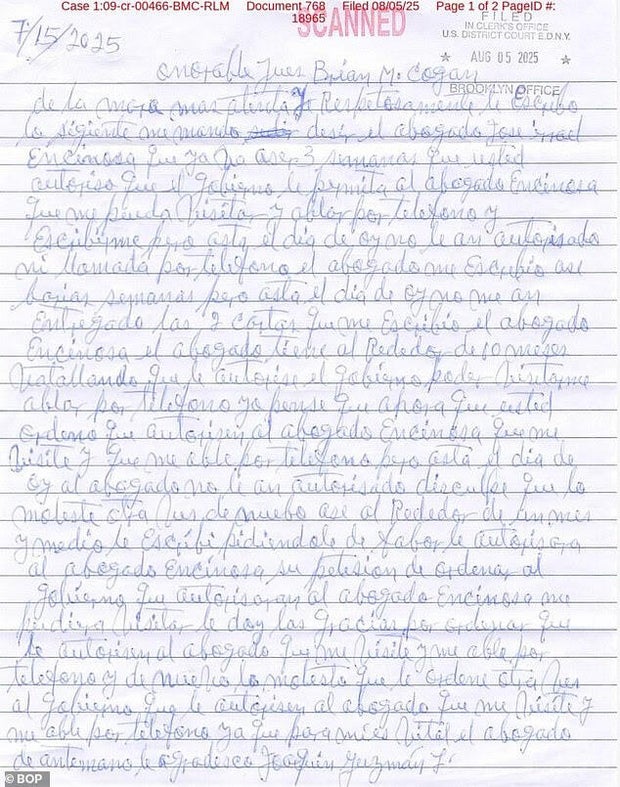 Case 1:09-cr-00466-BMC-RLM Document 768 Filed 08/05/25 Page 1 of 2 PageID #: 18965
SCANNED
FILED
IN CLERK'S OFFICE
U.S. DISTRICT COURT E.D.N.Y.
★ AUG 05 2025 ★
BROOKLYN OFFICE
7/15/2025
onorable Jues Brian M. Cogan
de la mora mas atenta y Respetosamente le Escribo
lo sigiente me mando desir el abogado Jose
Encinosa que ya ba aser 3 semanas que usted
autoriso que el gobierno le permita al abogado Encinosa
que me pueda Visitar y ablar por telefono y
Escribirme pero asta el dia de oy no le an autorisado
ni llamada por telefono el abogado me Escribio ase
barias semanas pero asta el dia de oy no me an
Entregado las 2 cartas que me Escribio el abogado
Encinosa el abogado tiene al Rededor de 10 meses
Vatallando que le autorise el gobierno poder Visitarme
ablar por telefono yo pense que ahora que usted
ordeno que autorisen al abogado Encinosa que me
Visite y que me able por telefono pero asta el dia de
oy al abogado no li an autorisado disculpe que lo
moleste otra Ves de nuebo ase al Rededor de un mes
y medio le Escribi pidiendole de fabor le autorisara
al abogado Encinosa su petision de ordenar al
gobierno que autorisaran al abogado Encinosa me
pudiera Visitar le doy las gracias por ordenar que
le autorisen al abogado que me Visite y me able por
telefono y de nuebo lo molesto que le ordene otra Ves
al gobierno que le autorisen al abogado que me Visite y
me able por telefono ya que para mi es Vital el abogado
de antemano le agradesco Joaquin Guzman L.
BOP